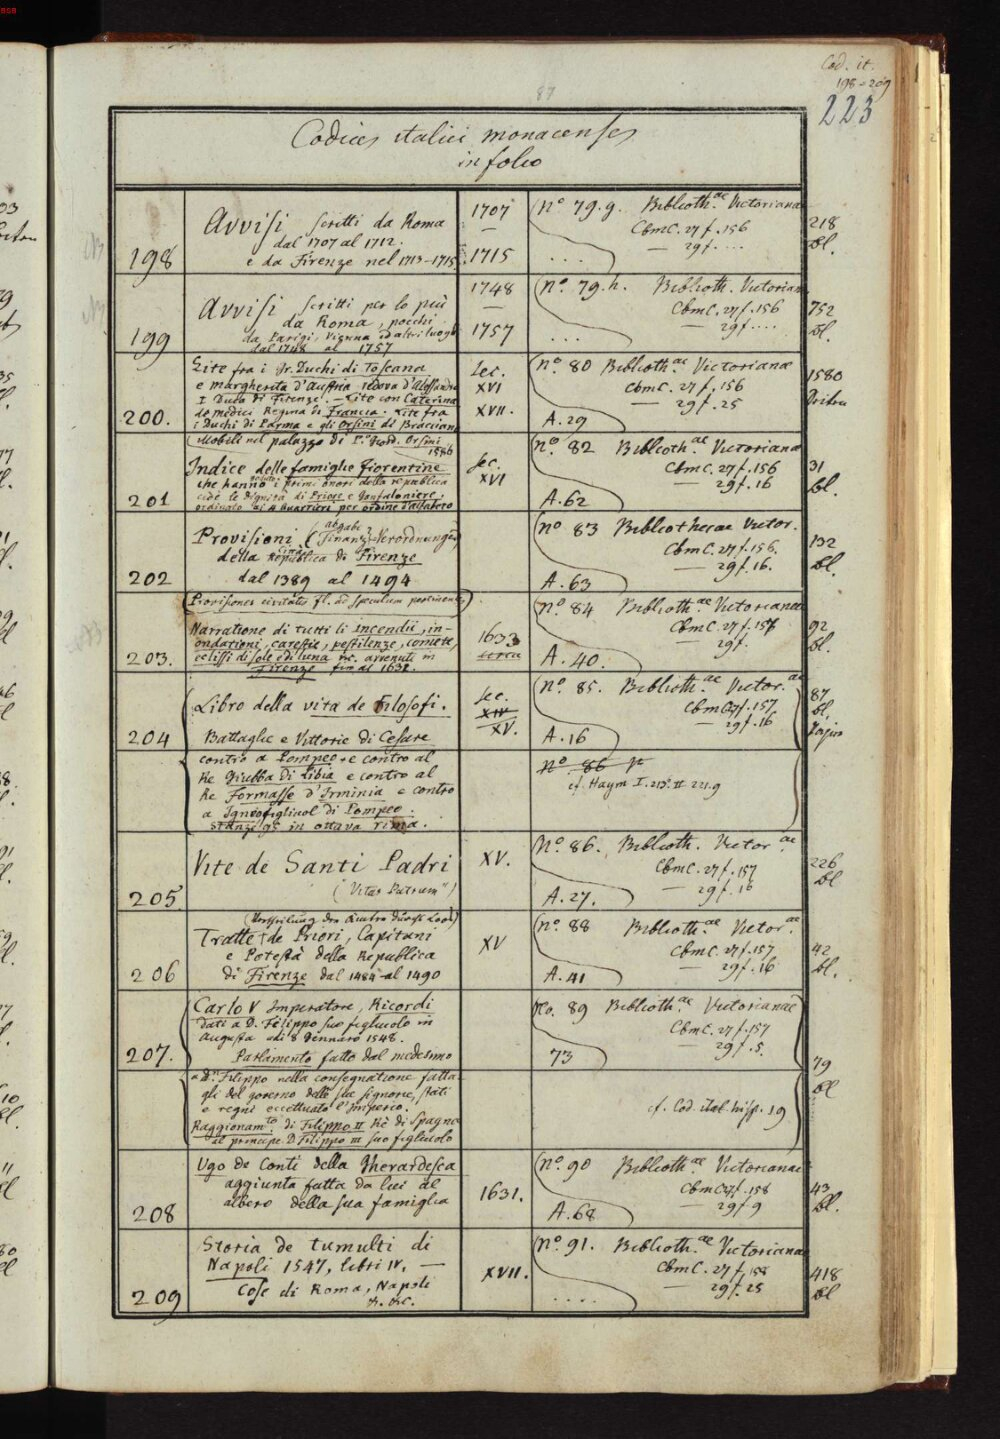 Cod. it.
198-209
223
87
Codices italici monacenses
in folio
198
Avvisi scritti da Roma
dal 1707 al 1712.
e da Firenze nel 1713-1715
1707
—
1715
Nº 79.g. Biblioth.ae Victoriana
CbmC. 27 f. 156
— 29 f. ....
...
218
Bl.
199
Avvisi scritti per lo più
da Roma, pochi
da Parigi, Vienna ed altri luoghi
dal 1748 al 1757
1748
—
1757
Nº. 79.h. Biblioth. Victorian
CbmC. 27 f. 156
— 29 f. ....
...
752
Bl.
200.
Lite fra i Gr. Duchi di Toscana
e Margherita d'Austria vedova d'Alessandro
I Duca di Firenze. — Lite con Caterina
de medici Regina di Francia. Lite fra
i Duchi di Parma e gli Orsini di Bracciano
Sec.
XVI
XVII.
Nº. 80 Biblioth.ae Victoriana
CbmC. 27 f. 156
— 29 f. 25
A. 29
1580
(Mobili nel palazzo di P. Giord. Orsini
1586
201
Indice delle famiglie Fiorentine
che hanno goduto i primi onori della republica
cioè le dignità di Priore e Gonfaloniere,
ordinato ai 4 Quartieri per ordine d'alfabeto
Sec.
XVI
Nº. 82 Biblioth.ae Victoriana
CbmC. 27 f. 156
— 29 f. 16
A. 62
31
Bl.
202
Provisioni (abgabe? Finanz-Verordnungen)
della città Republica di Firenze
dal 1389 al 1494
Nº 83 Bibliothecae Victor.
CbmC. 27 f. 156.
— 29 f. 16.
A. 63
132
Bl.
(Provisiones civitatis Fl. ad speculum pertinentes)
203.
Narratione di tutti li Incendii, in-
ondationi, carestie, pestilenze, comete,
eclissi di sole e di luna etc. avvenuti in
Firenze fin al 1632.
1633
circa
Nº. 84 Biblioth.ae Victorianae
CbmC. 27 f. 157
29 f.
A. 40.
92
Bl.
204
Libro della vita de Filosofi.
Battaglie e Vittorie di Cesare
contro a Pompeo e contro al
Re Giubba di Libia e contro al
Re Formasso d'Irminia e contro
a Igneo figliuol di Pompeo.
Stanze 95 in ottava rima.
Sec.
XIV
XV.
Nº. 85. Biblioth.ae Victor.ae
CbmC 27 f. 157.
— 29 f. 16
A. 16
Nº 86
cf. Haym I. 213. II 221.9
87
Bl
205
Vite de Santi Padri
(Vitas Patrum")
XV.
Nº 86. Biblioth. Victor.ae
CbmC. 27 f. 157
— 29 f. 16
A. 27.
226
Bl
206
(Vertheilung der Ämter durch Loos)
Tratte de Priori, Capitani
e Potestà della Republica
di Firenze dal 1484 al 1490
XV
Nº 88 Biblioth.ae Victor.ae
CbmC. 27 f. 157
— 29 f. 16
A. 41
42
Bl.
207.
Carlo V Imperatore, Ricordi
dati a D. Felippo suo figliuolo in
Augusta adi 8 Gennaro 1548.
Parlamento fatto dal medesmo
a D. Filippo nella consegnatione fatta-
gli del governo delle sue signorie, stati
e regni eccettuato l'Imperio.
Raggionam.to di Filippo II Rè di Spagna
al principe D. Filippo III suo figliuolo
No. 89 Biblioth.ae Victorianae
CbmC. 27 f. 157
— 29 f. 5.
73
cf. Cod. ital. hisp. 19
79
Bl
208
Ugo de Conti della Gherardesca
aggiunta fatta da lui al
albero della sua famiglia
1631.
Nº. 90 Biblioth.ae Victorianae
CbmC 27 f. 158
— 29 f. 9
A. 68
43
Bl.
209
Storia de tumulti di
Napoli 1547, libri IV. —
Cose di Roma, Napoli
&. &c.
XVII.
Nº. 91. Biblioth.ae Victoriana
CbmC. 27 f. 158
— 29 f. 25
....
418
Bl